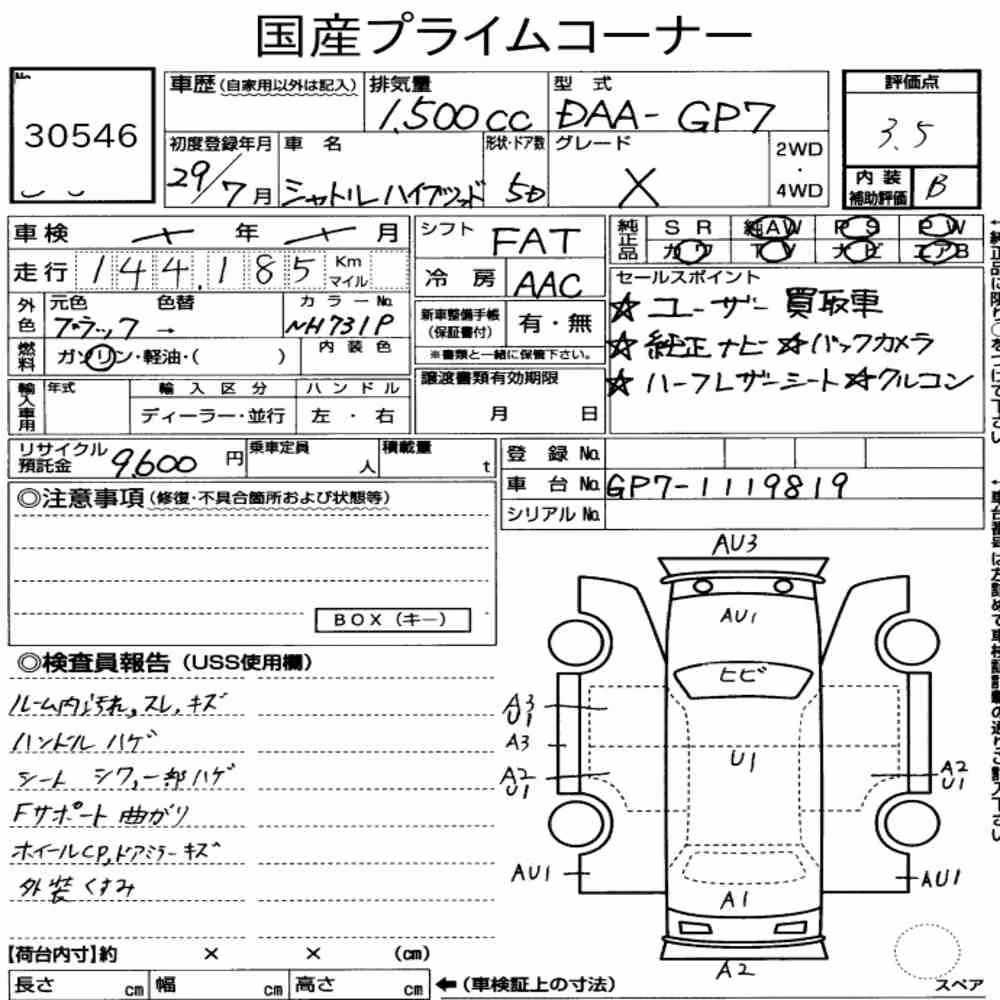 国産プライムコーナー
No.
30546
車歴(自家用以外は記入)
排気量
1.500cc
型式
DAA-GP7
評価点
3.5
内装
補助評価
B
初度登録年月
29/7月
車名
シャトルハイブリッド
形状・ドア数
5D
グレード
X
2WD
・
4WD
車検 年 月
走行 144.185 Km
マイル
シフト
FAT
冷房 AAC
純正品
SR 純AW PS PW
カワ TV ナビ エアB
セールスポイント
☆ユーザー買取車
☆純正ナビ☆バックカメラ
☆ハーフレザーシート☆クルコン
外色
元色 色替 カラーNo.
ブラック → NH731P
燃料
ガソリン・軽油・( )
内装色
新車整備手帳
(保証書付)
有・無
※書類と一緒に保管下さい。
輸入車用
年式
輸入区分
ディーラー・並行
ハンドル
左・右
譲渡書類有効期限
月 日
リサイクル
預託金
9,600円
乗車定員
人
積載量
t
登録No.
車台No. GP7-1119819
シリアルNo.
◎注意事項(修復・不具合箇所および状態等)
BOX(キー)
◎検査員報告(USS使用欄)
ルーム内汚れ,スレ,キズ
ハンドル ハゲ
シート シワ,一部ハゲ
Fサポート 曲がり
ホイールCP,ドアミラーキズ
外装くすみ
AU3
AU1
ヒビ
A3
U1
A3
U1
A2
U1
A2
U1
AU1
AU1
A1
A2
スペア
【荷台内寸】約 × × (cm)
長さ cm 幅 cm 高さ cm
←(車検証上の寸法)
←純正品に限り○をつけて下さい
←車台番号は左詰めで車検証記載の通りご記入下さい